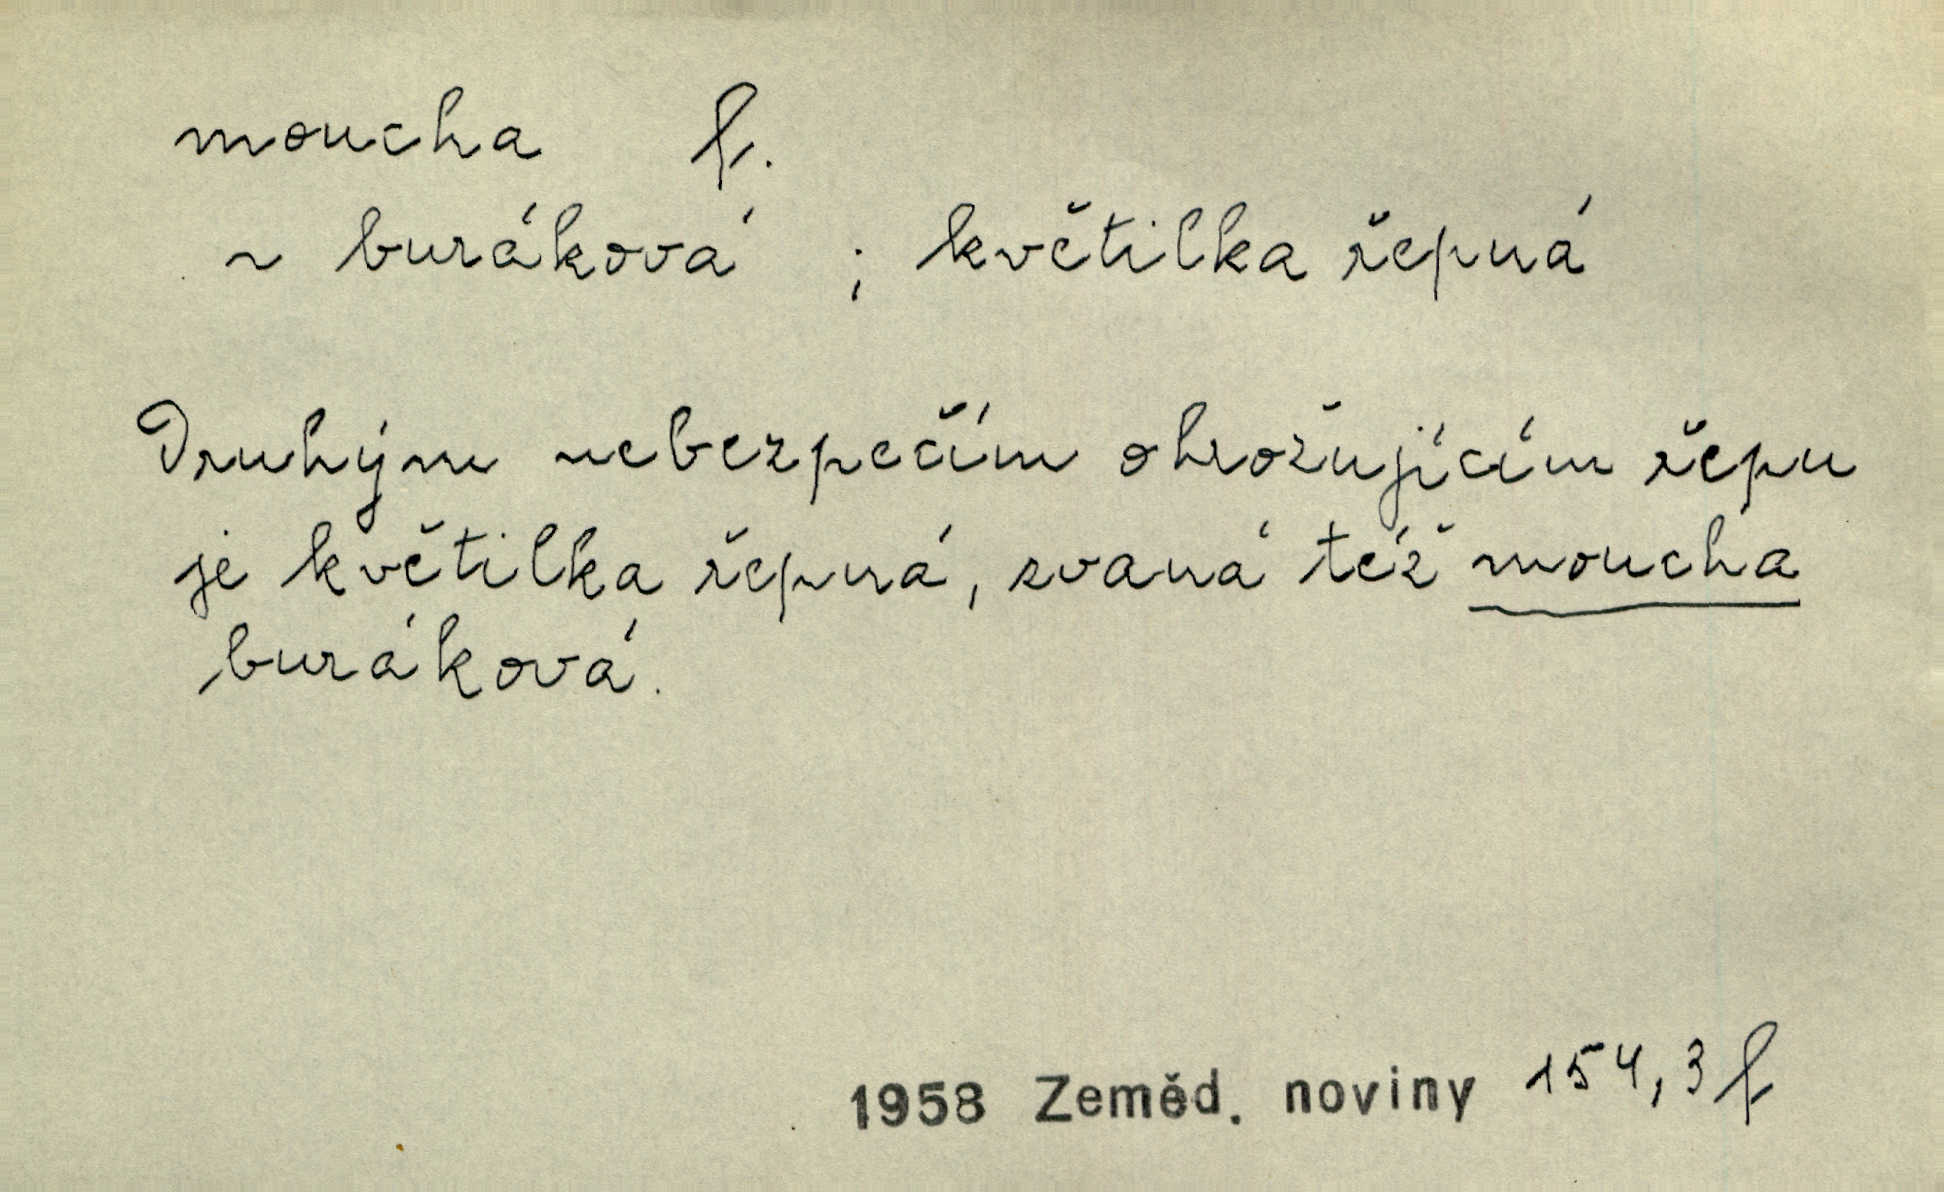 moucha f.
~ buráková ; květilka řepná
Druhým nebezpečím ohrožujícím řepu
je květilka řepná, zvaná též moucha
buráková.
1958 Zeměd. noviny 154,3 f